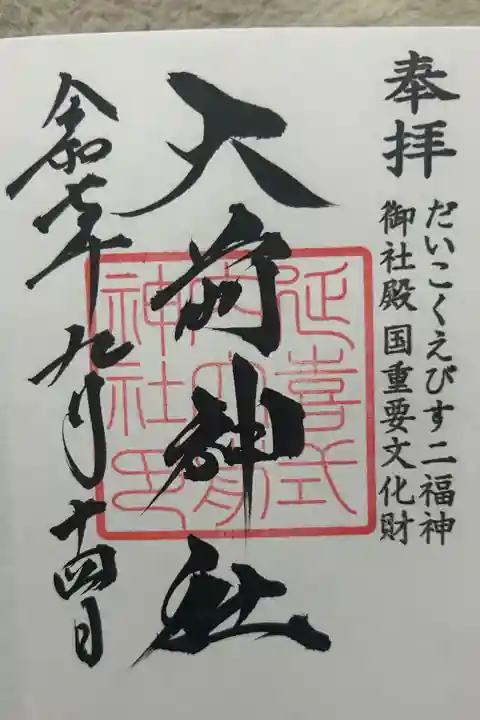 奉拝
だいこくえびす二福神
御社殿 国重要文化財
大前神社
延喜式
内大前
神社印
令和七年九月十四日